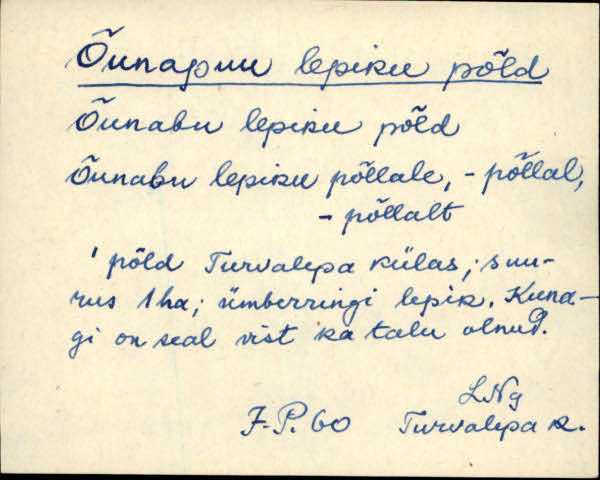 Õunapuu lepiku põld
Õunabu lepiku põld
Õunabu lepiku põllale, - põllal,
- põllalt
' põld Turvalepa külas; suu-
rus 1 ha; ümberringi lepik. Kuna-
gi on seal vist ka talu olnud.
LNg
J.P. 60 Turvalepa k.